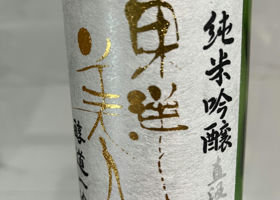 純米吟醸 直汲
東洋
美人
醇道一途